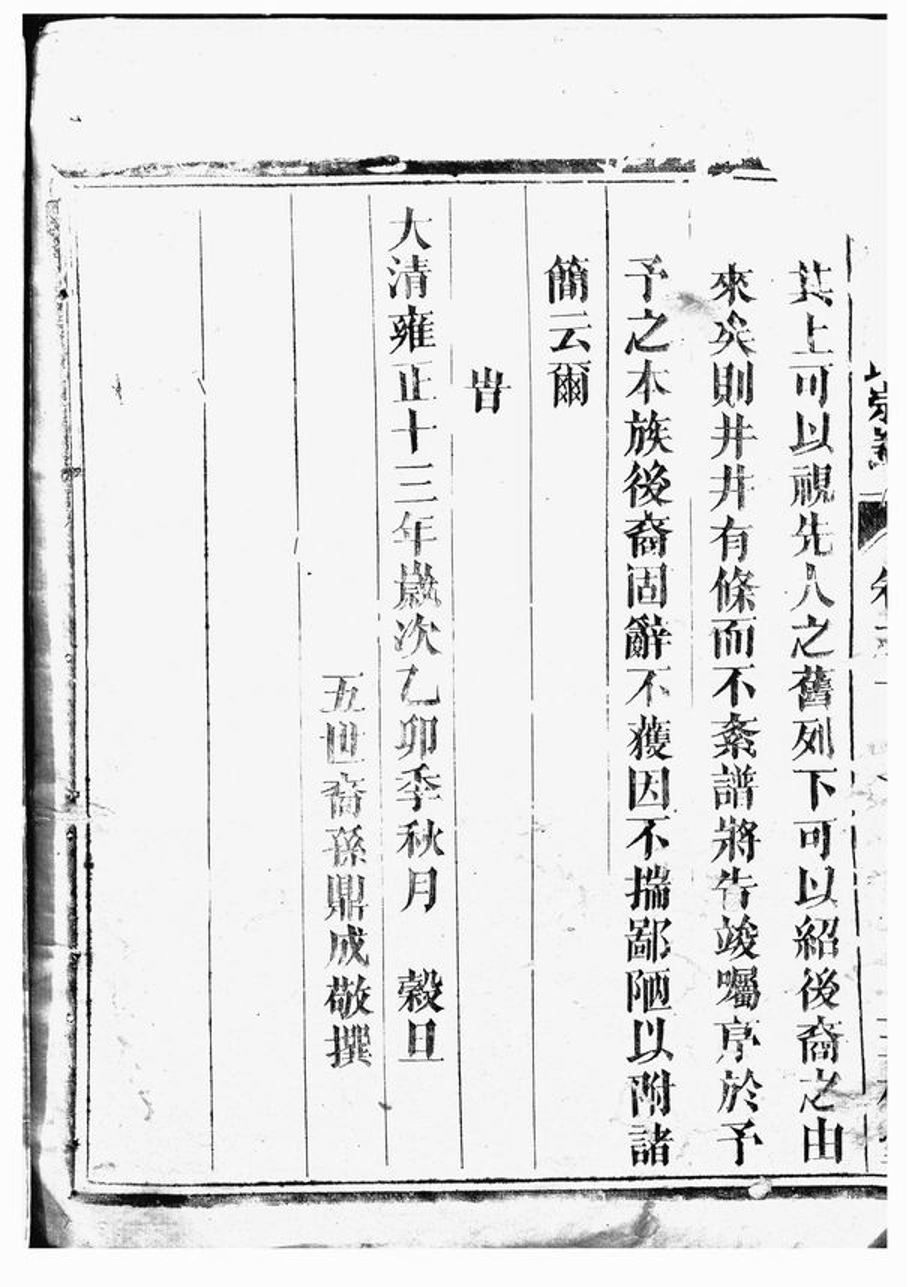 其上可以視先人之舊列下可以紹後裔之由
來矣則井井有條而不紊譜將告竣囑序於予
予之本族後裔固辭不獲因不揣鄙陋以附諸
簡云爾
旹
大清雍正十三年歲次乙卯季秋月 榖旦
五世裔孫鼎成敬撰